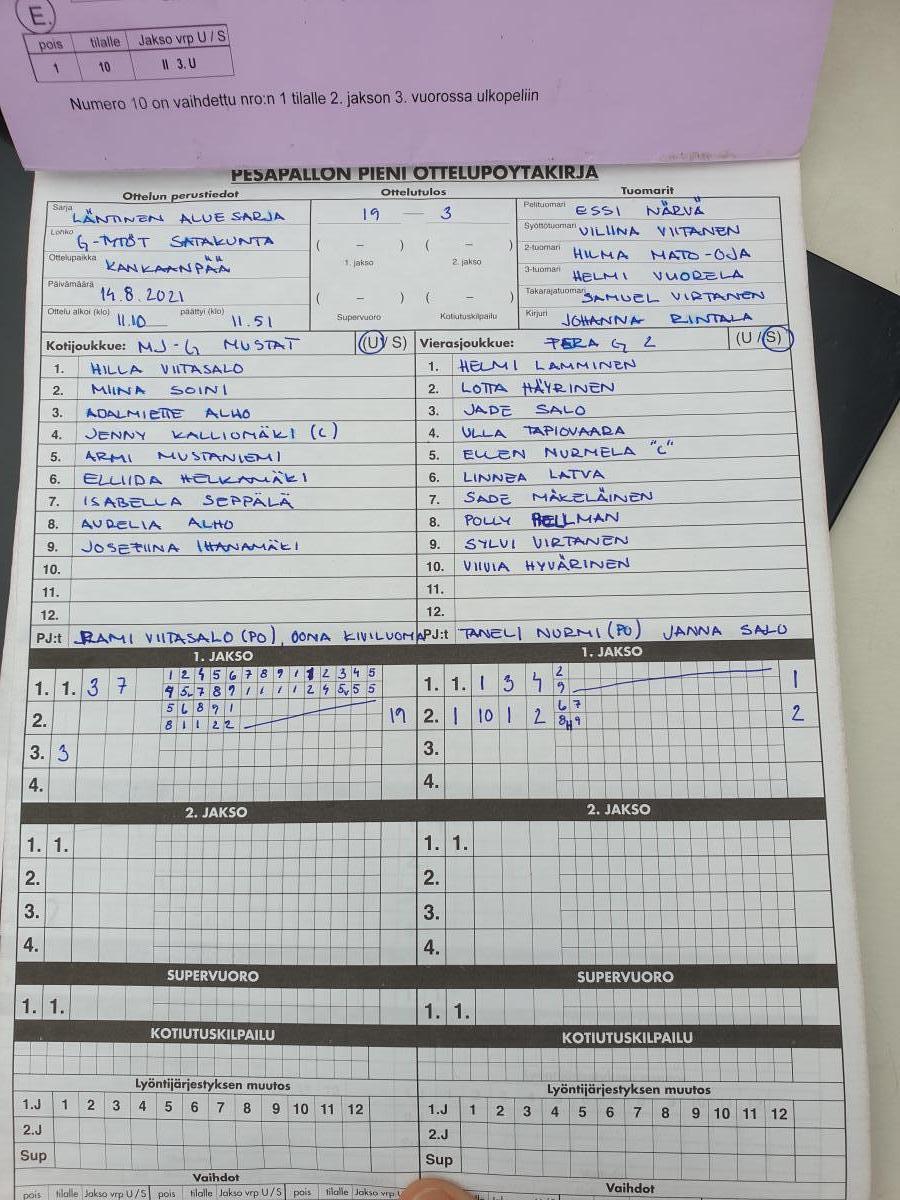 E.
pois tilalle Jakso vrp U / S
1 10 II 3. U
Numero 10 on vaihdettu nro:n 1 tilalle 2. jakson 3. vuorossa ulkopeliin
PESÄPALLON PIENI OTTELUPÖYTÄKIRJA
Ottelun perustiedot Ottelutulos Tuomarit
Sarja LÄNTINEN ALUESARJA
Lohko G-TYTÖT SATAKUNTA
Ottelupaikka KANKAANPÄÄ
Päivämäärä 14.8.2021
Ottelu alkoi (klo) 11.10 päättyi (klo) 11.51
19 — 3
( – ) ( – )
1. jakso 2. jakso
( – ) ( – )
Supervuoro Kotiutuskilpailu
Pelituomari ESSI NÄRVÄ
Syöttötuomari VILIINA VIITANEN
2-tuomari HILMA MATO-OJA
3-tuomari HELMI VUORELA
Takarajatuomari SAMUEL VIRTANEN
Kirjuri JOHANNA RINTALA
Kotijoukkue: MJ-G MUSTAT (U/ S)
1. HILLA VIITASALO
2. MIINA SOINI
3. ADALMIETTE ALHO
4. JENNY KALLIOMÄKI (C)
5. ARMI MUSTANIEMI
6. ELLIIDA HELKAMÄKI
7. ISABELLA SEPPÄLÄ
8. AURELIA ALHO
9. JOSEFIINA IHANAMÄKI
10.
11.
12.
PJ:t RAMI VIITASALO (PO), OONA KIVILUOMA
Vierasjoukkue: PERA G 2 (U / S)
1. HELMI LAMMINEN
2. LOTTA HÄYRINEN
3. JADE SALO
4. ULLA TAPIOVAARA
5. ELLEN NURMELA "C"
6. LINNEA LATVA
7. SADE MÄKELÄINEN
8. POLLY HELLMAN
9. SYLVI VIRTANEN
10. VIIVIA HYVÄRINEN
11.
12.
PJ:t TANELI NURMI (PO) JANNA SALO
1. JAKSO
1 2 4 5 6 7 8 9 1 1 2 3 4 5
1. 1. 3 7
5 6 8 9 1
2. 8 1 1 2 2 19
3. 3
4.
1. JAKSO
2
1. 1. 1 3 4 9 1
6 7
2. 1 10 1 2 8H9 2
3.
4.
2. JAKSO
1. 1.
2.
3.
4.
2. JAKSO
1. 1.
2.
3.
4.
SUPERVUORO
1. 1.
SUPERVUORO
1. 1.
KOTIUTUSKILPAILU
KOTIUTUSKILPAILU
Lyöntijärjestyksen muutos
1.J 1 2 3 4 5 6 7 8 9 10 11 12
2.J
Sup
Lyöntijärjestyksen muutos
1.J 1 2 3 4 5 6 7 8 9 10 11 12
2.J
Sup
Vaihdot
pois tilalle Jakso vrp U / S pois tilalle Jakso vrp U / S pois tilalle Jakso vrp U
Vaihdot
tilalle Jakso vrp U / S pois tilalle Jakso vrp U / S pois tilalle Jakso vrp U / S